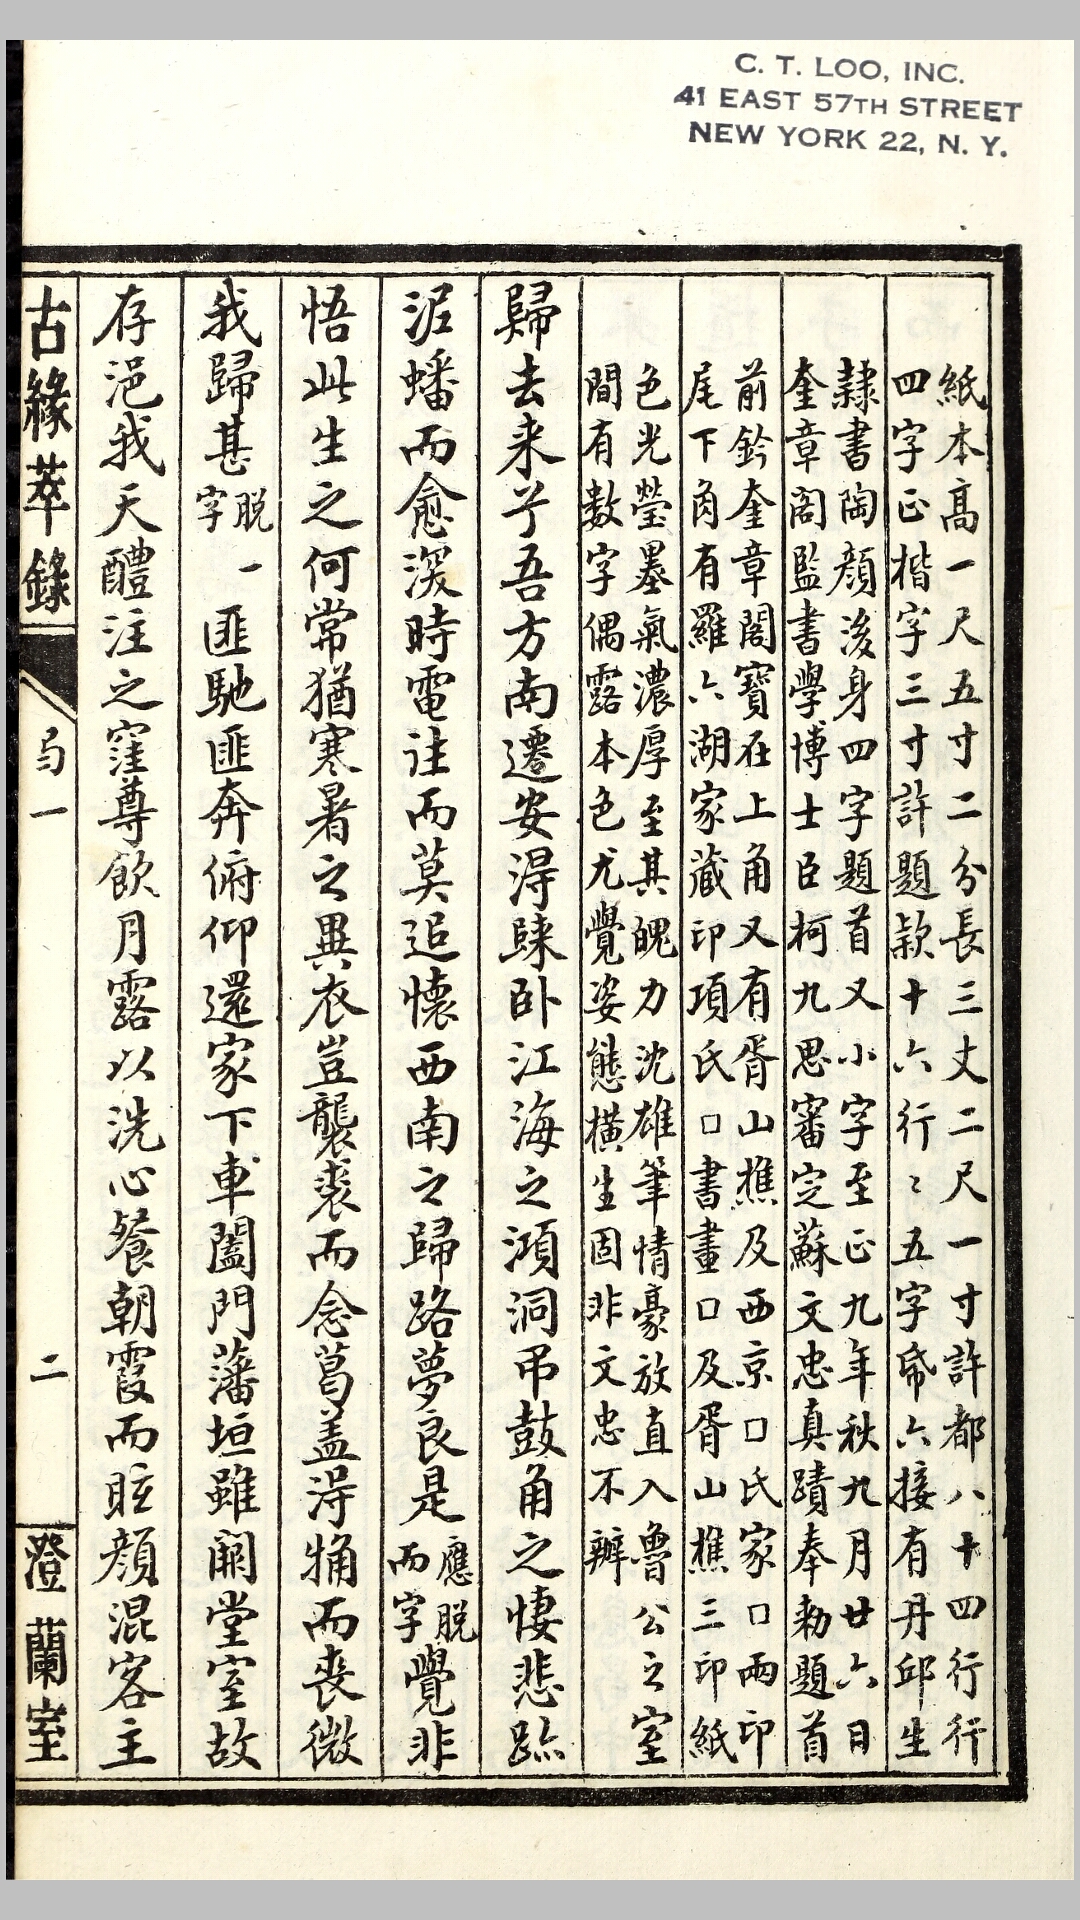 C. T. LOO, INC.
41 EAST 57TH STREET
NEW YORK 22, N. Y.
紙本高一尺五寸二分長三丈二尺一寸許都八十四行行
四字正楷字三寸許題款十六行〻五字帋六接有丹邱生
隷書陶顔後身四字題首又小字至正九年秋九月廿六日
奎章閣監書學博士臣柯九思審定蘇文忠真蹟奉勑題首
前鈐奎章閣寶在上角又有胥山樵及西京口氏家口兩印
尾下角有羅六湖家藏印項氏口書畫口及胥山樵三印紙
色光瑩墨氣濃厚至其魄力沈雄筆情豪放直入魯公之室
間有數字偶露本色尤覺姿態橫生固非文忠不辦
歸去来兮吾方南遷安淂歸卧江海之澒洞弔鼓角之悽悲跡
泥蟠而愈深時電往而莫追懷西南之歸路夢良是應脱而字覺非
悟此生之何常猶寒暑之異衣豈襲裘而念葛盖淂觕而喪微
我歸甚脱一字匪馳匪奔俯仰還家下車闔門藩垣雖闕堂室故
存浥我天醴注之窪尊飲月露以洗心餐朝霞而眩顔混客主
古緣萃錄
勻一
二
澄蘭室